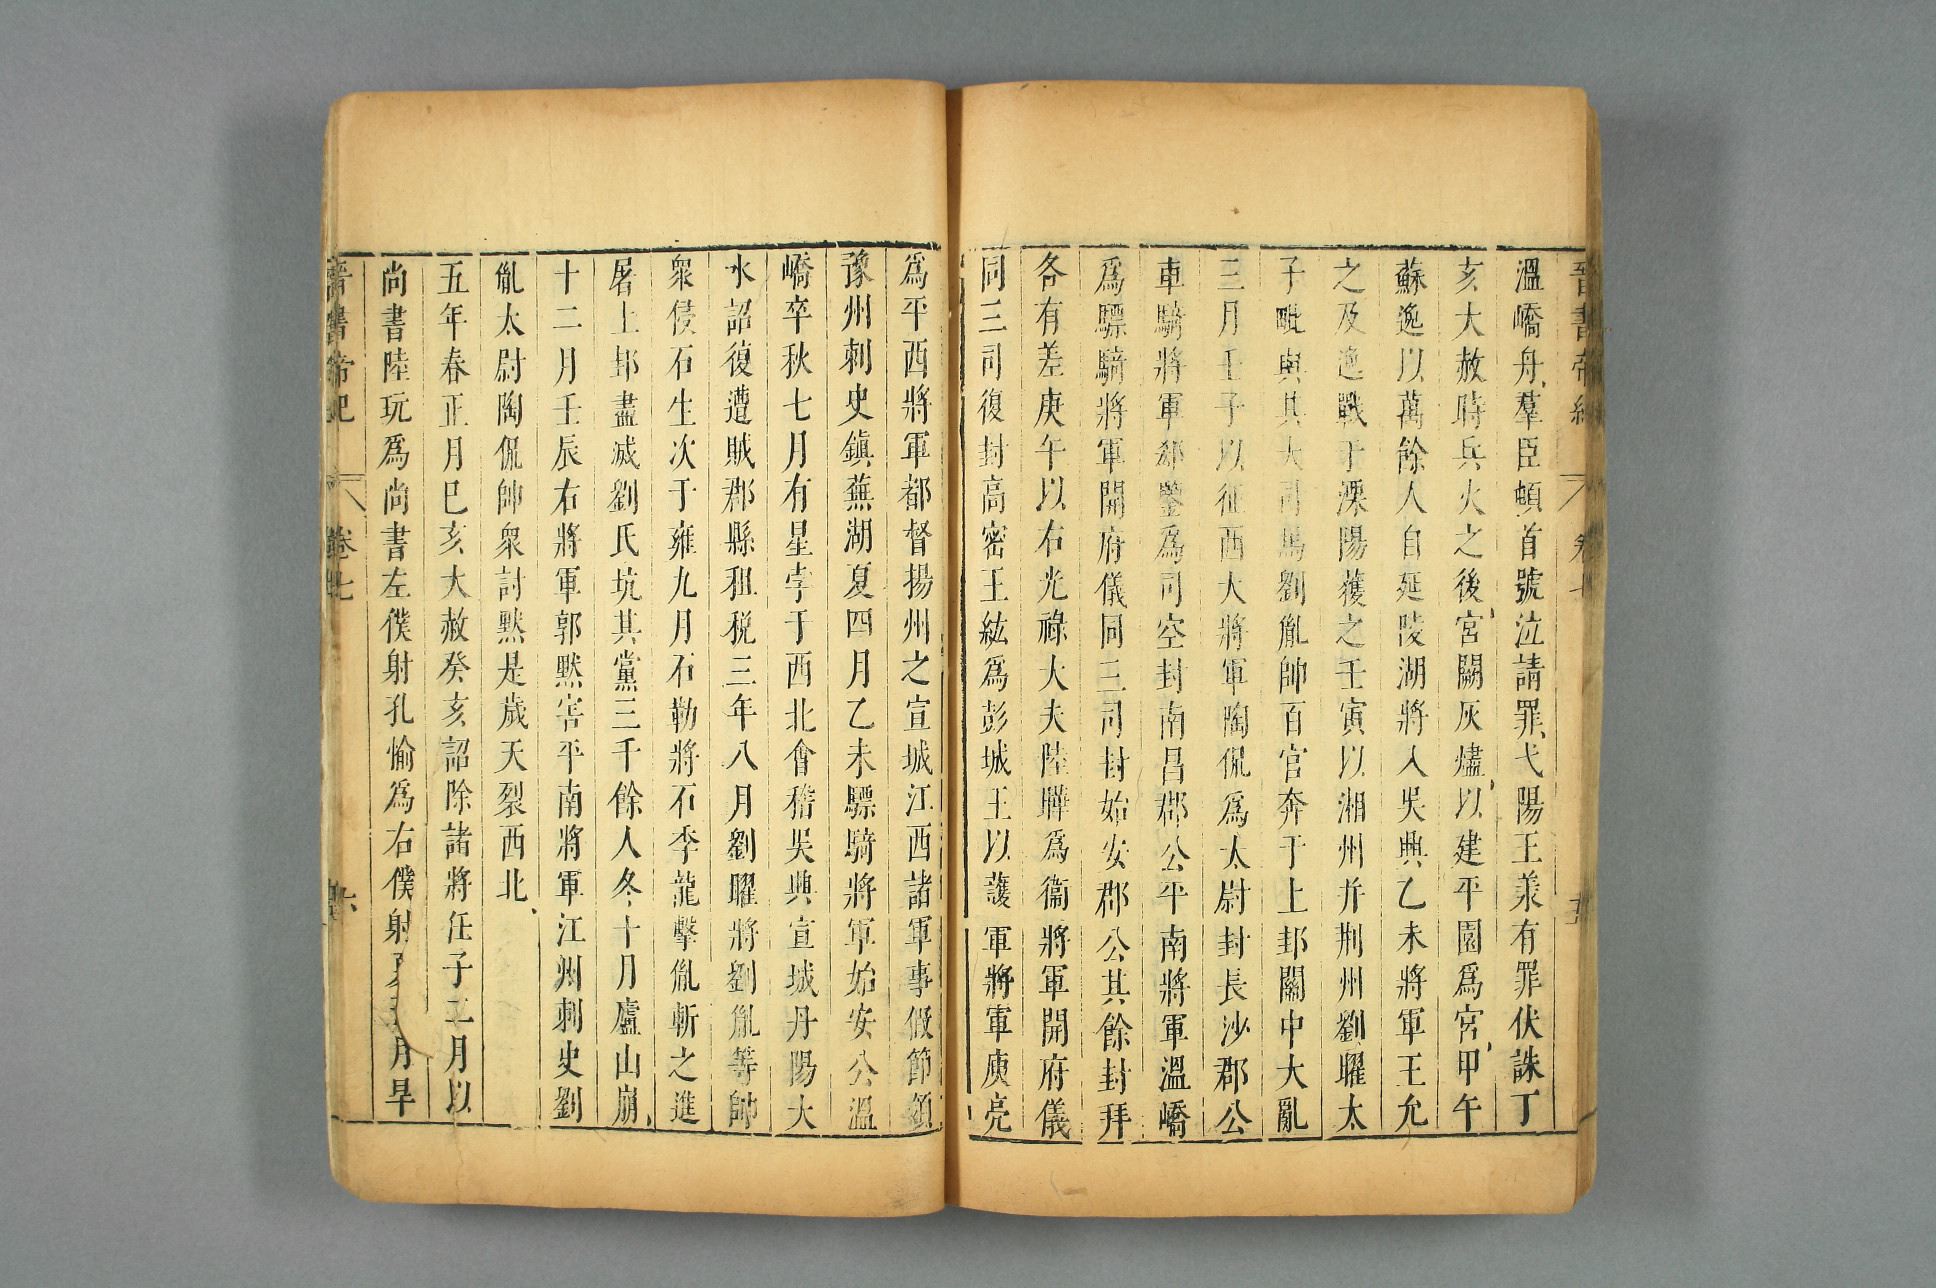 晉書帝紀 卷七
溫嶠舟羣臣頓首號泣請罪弋陽王羕有罪伏誅丁
亥大赦時兵火之後宮闕灰燼以建平園爲宮甲午
蘇逸以萬餘人自延陵湖將入吳興乙未將軍王允
之及逸戰于溧陽獲之壬寅以湘州并荆州劉曜太
子毗與其大司馬劉胤帥百官奔于上邽關中大亂
三月壬子以征西大將軍陶侃爲太尉封長沙郡公
車騎將軍郗鑒爲司空封南昌郡公平南將軍溫嶠
爲驃騎將軍開府儀同三司封始安郡公其餘封拜
各有差庚午以右光祿大夫陸曄爲衞將軍開府儀
同三司復封高密王紘爲彭城王以護軍將軍庾亮
爲平西將軍都督揚州之宣城江西諸軍事假節領
豫州刺史鎮蕪湖夏四月乙未驃騎將軍始安公溫
嶠卒秋七月有星孛于西北會稽吳興宣城丹陽大
水詔復遭賊郡縣租税三年八月劉曜將劉胤等帥
衆侵石生次于雍九月石勒將石季龍擊胤斬之進
屠上邽盡滅劉氏坑其黨三千餘人冬十月廬山崩
十二月壬辰右將軍郭默害平南將軍江州刺史劉
胤太尉陶侃帥衆討默是歲天裂西北
五年春正月巳亥大赦癸亥詔除諸將任子二月以
尚書陸玩爲尚書左僕射孔愉爲右僕射夏 月旱
晉書帝紀 卷七 六